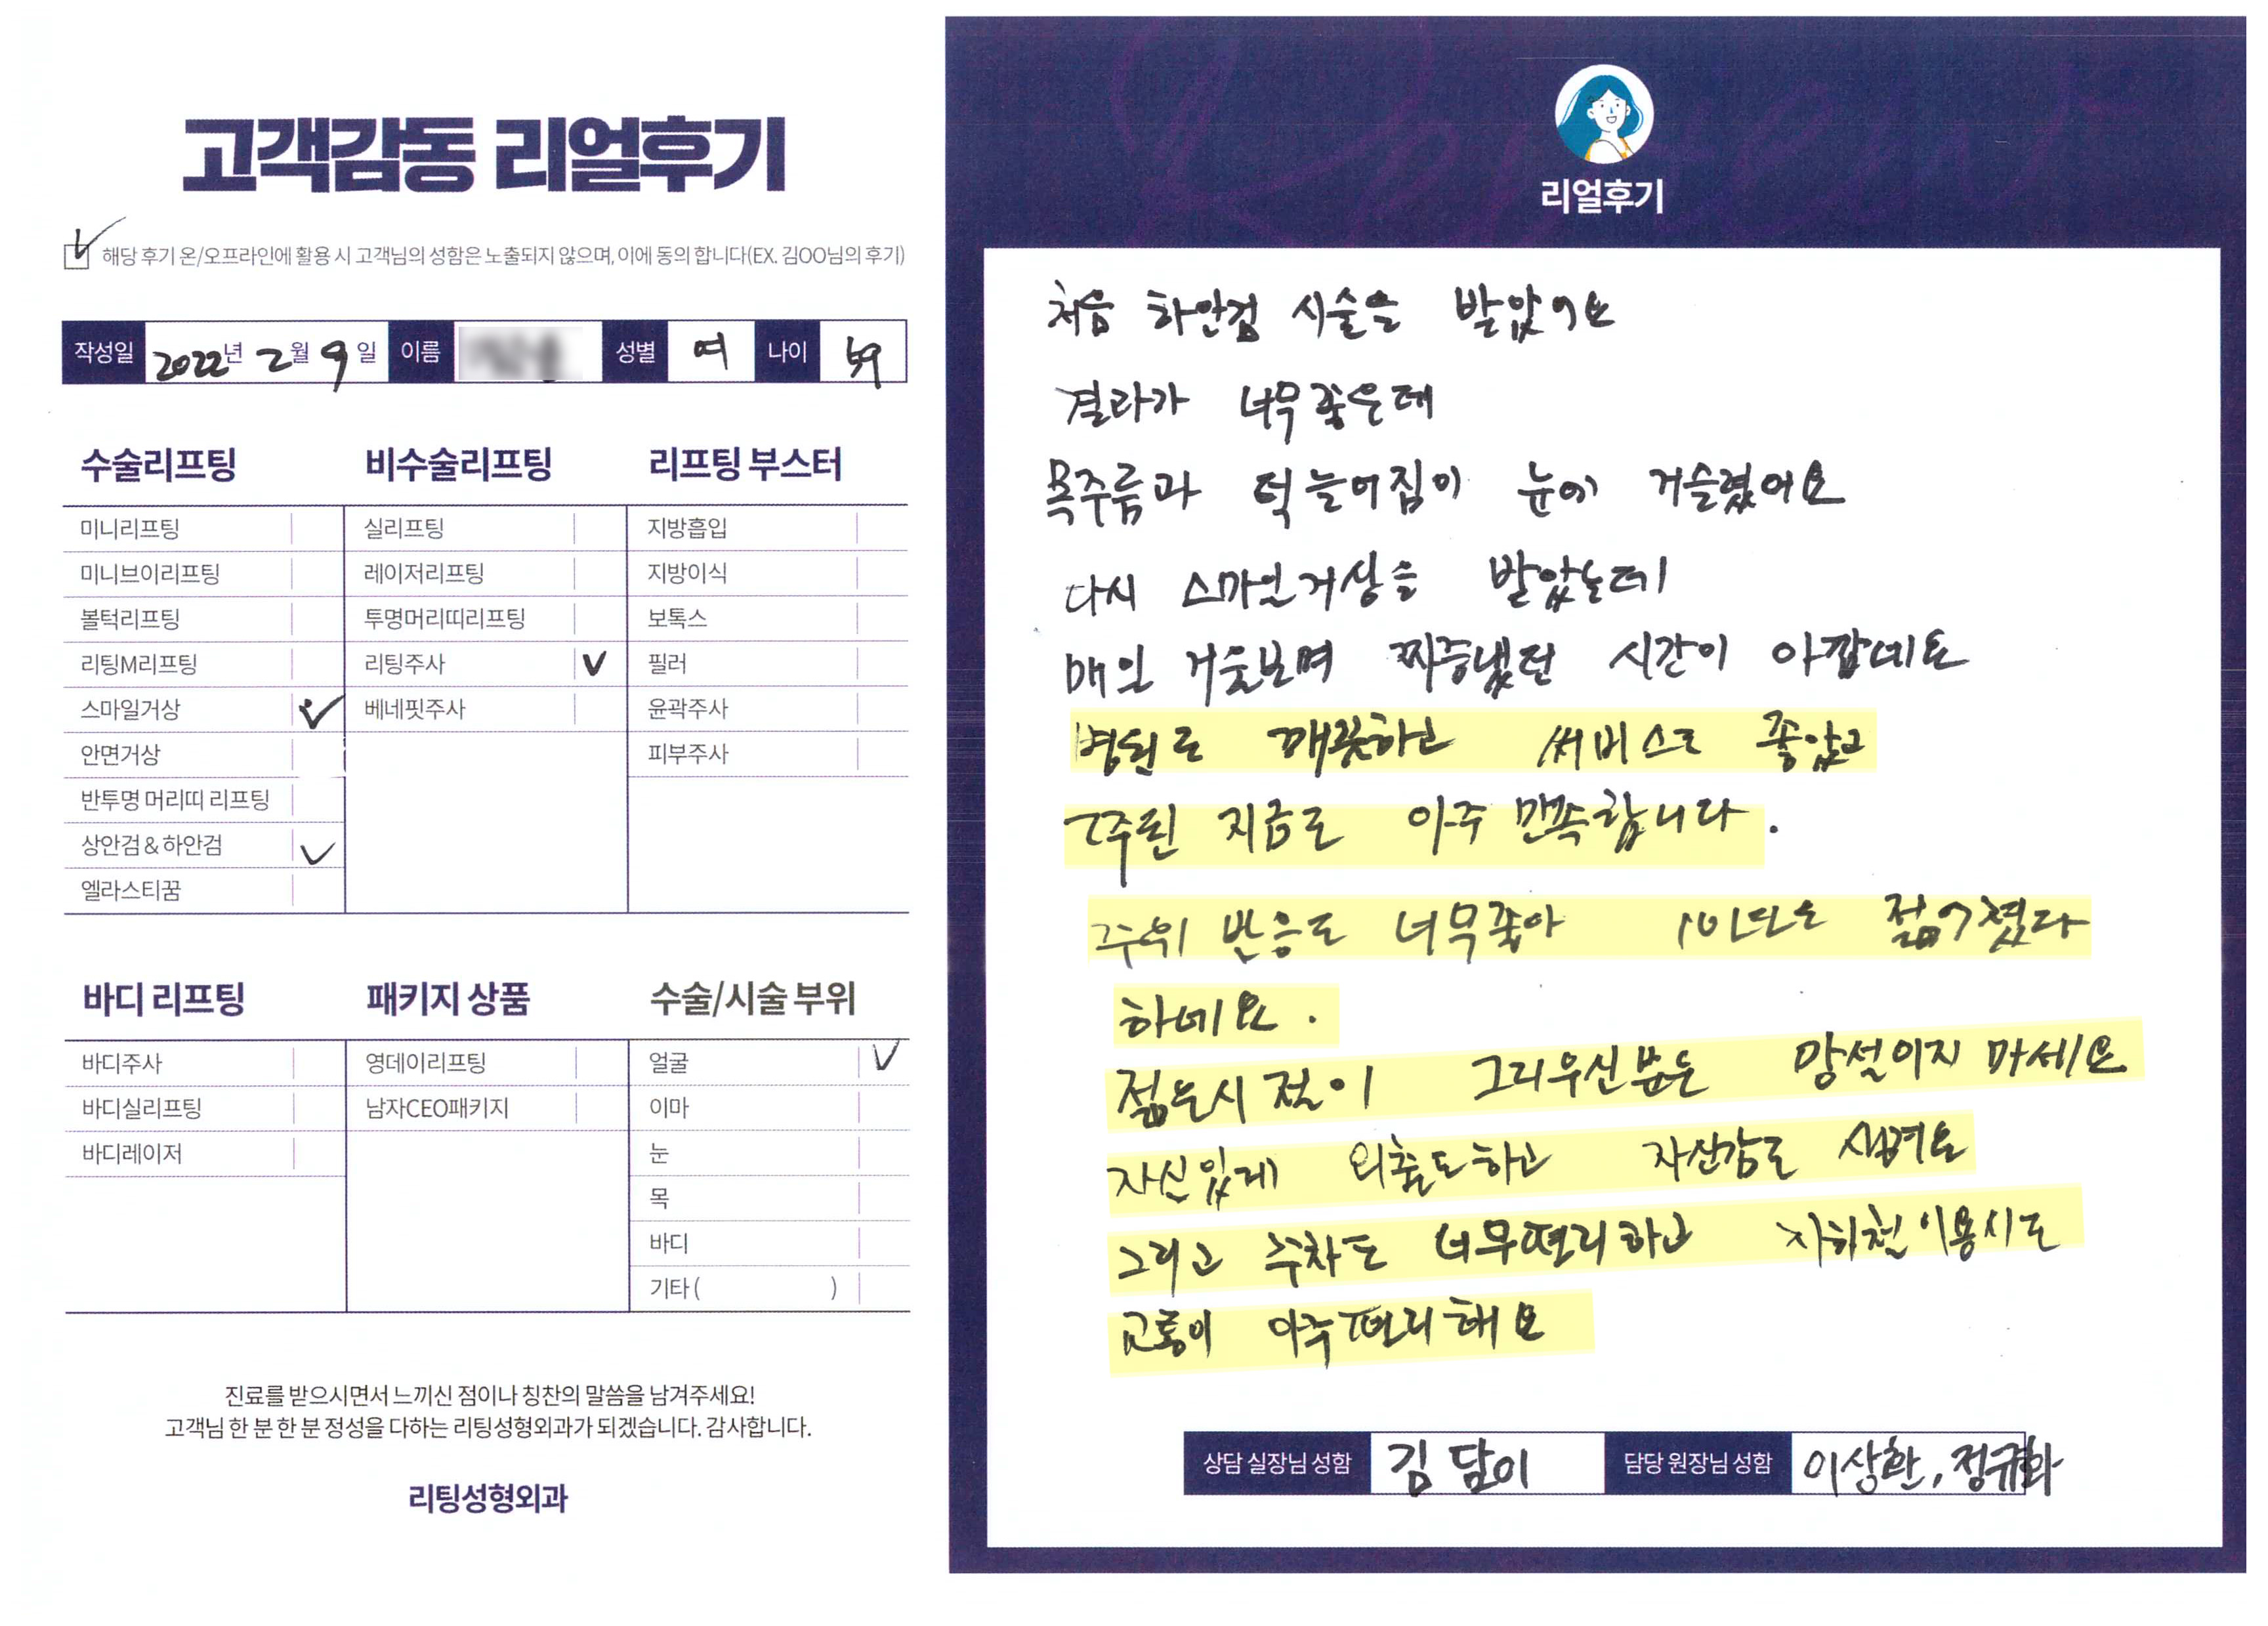 고객감동 리얼후기
해당 후기 온/오프라인에 활용 시 고객님의 성함은 노출되지 않으며, 이에 동의 합니다(EX. 김OO님의 후기)
작성일 2022년 2월 9일 이름 성별 여 나이 59
수술리프팅 비수술리프팅 리프팅 부스터
미니리프팅 실리프팅 지방흡입
미니브이리프팅 레이저리프팅 지방이식
볼턱리프팅 투명머리띠리프팅 보톡스
리팅M리프팅 리팅주사 V 필러
스마일거상 V 베네핏주사 윤곽주사
안면거상 피부주사
반투명 머리띠 리프팅
상안검 & 하안검 V
엘라스티꿈
바디 리프팅 패키지 상품 수술/시술 부위
바디주사 영데이리프팅 얼굴 V
바디실리프팅 남자CEO패키지 이마
바디레이저 눈
목
바디
기타 ( )
진료를 받으시면서 느끼신 점이나 칭찬의 말씀을 남겨주세요!
고객님 한 분 한 분 정성을 다하는 리팅성형외과가 되겠습니다. 감사합니다.
리팅성형외과
리얼후기
처음 하안검 시술을 받았어요
결과가 너무 좋은데
목주름과 턱 늘어짐이 눈에 거슬렸어요
다시 스마일거상을 받았는데
매일 거울보며 짜증냈던 시간이 아깝데요
병원도 깨끗하고 써비스도 좋았고
7주된 지금도 아주 만족합니다.
주위 반응도 너무좋아 10년은 젊어졌다
하네요.
젊은시절이 그리우신분은 망설이지 마세요
자신있게 외출도하고 자신감도 생겨요
그리고 주차도 너무편리하고 지하철이용시도
교통이 아주편리해요
상담 실장님 성함 김담이 담당 원장님 성함 이상환, 정규화